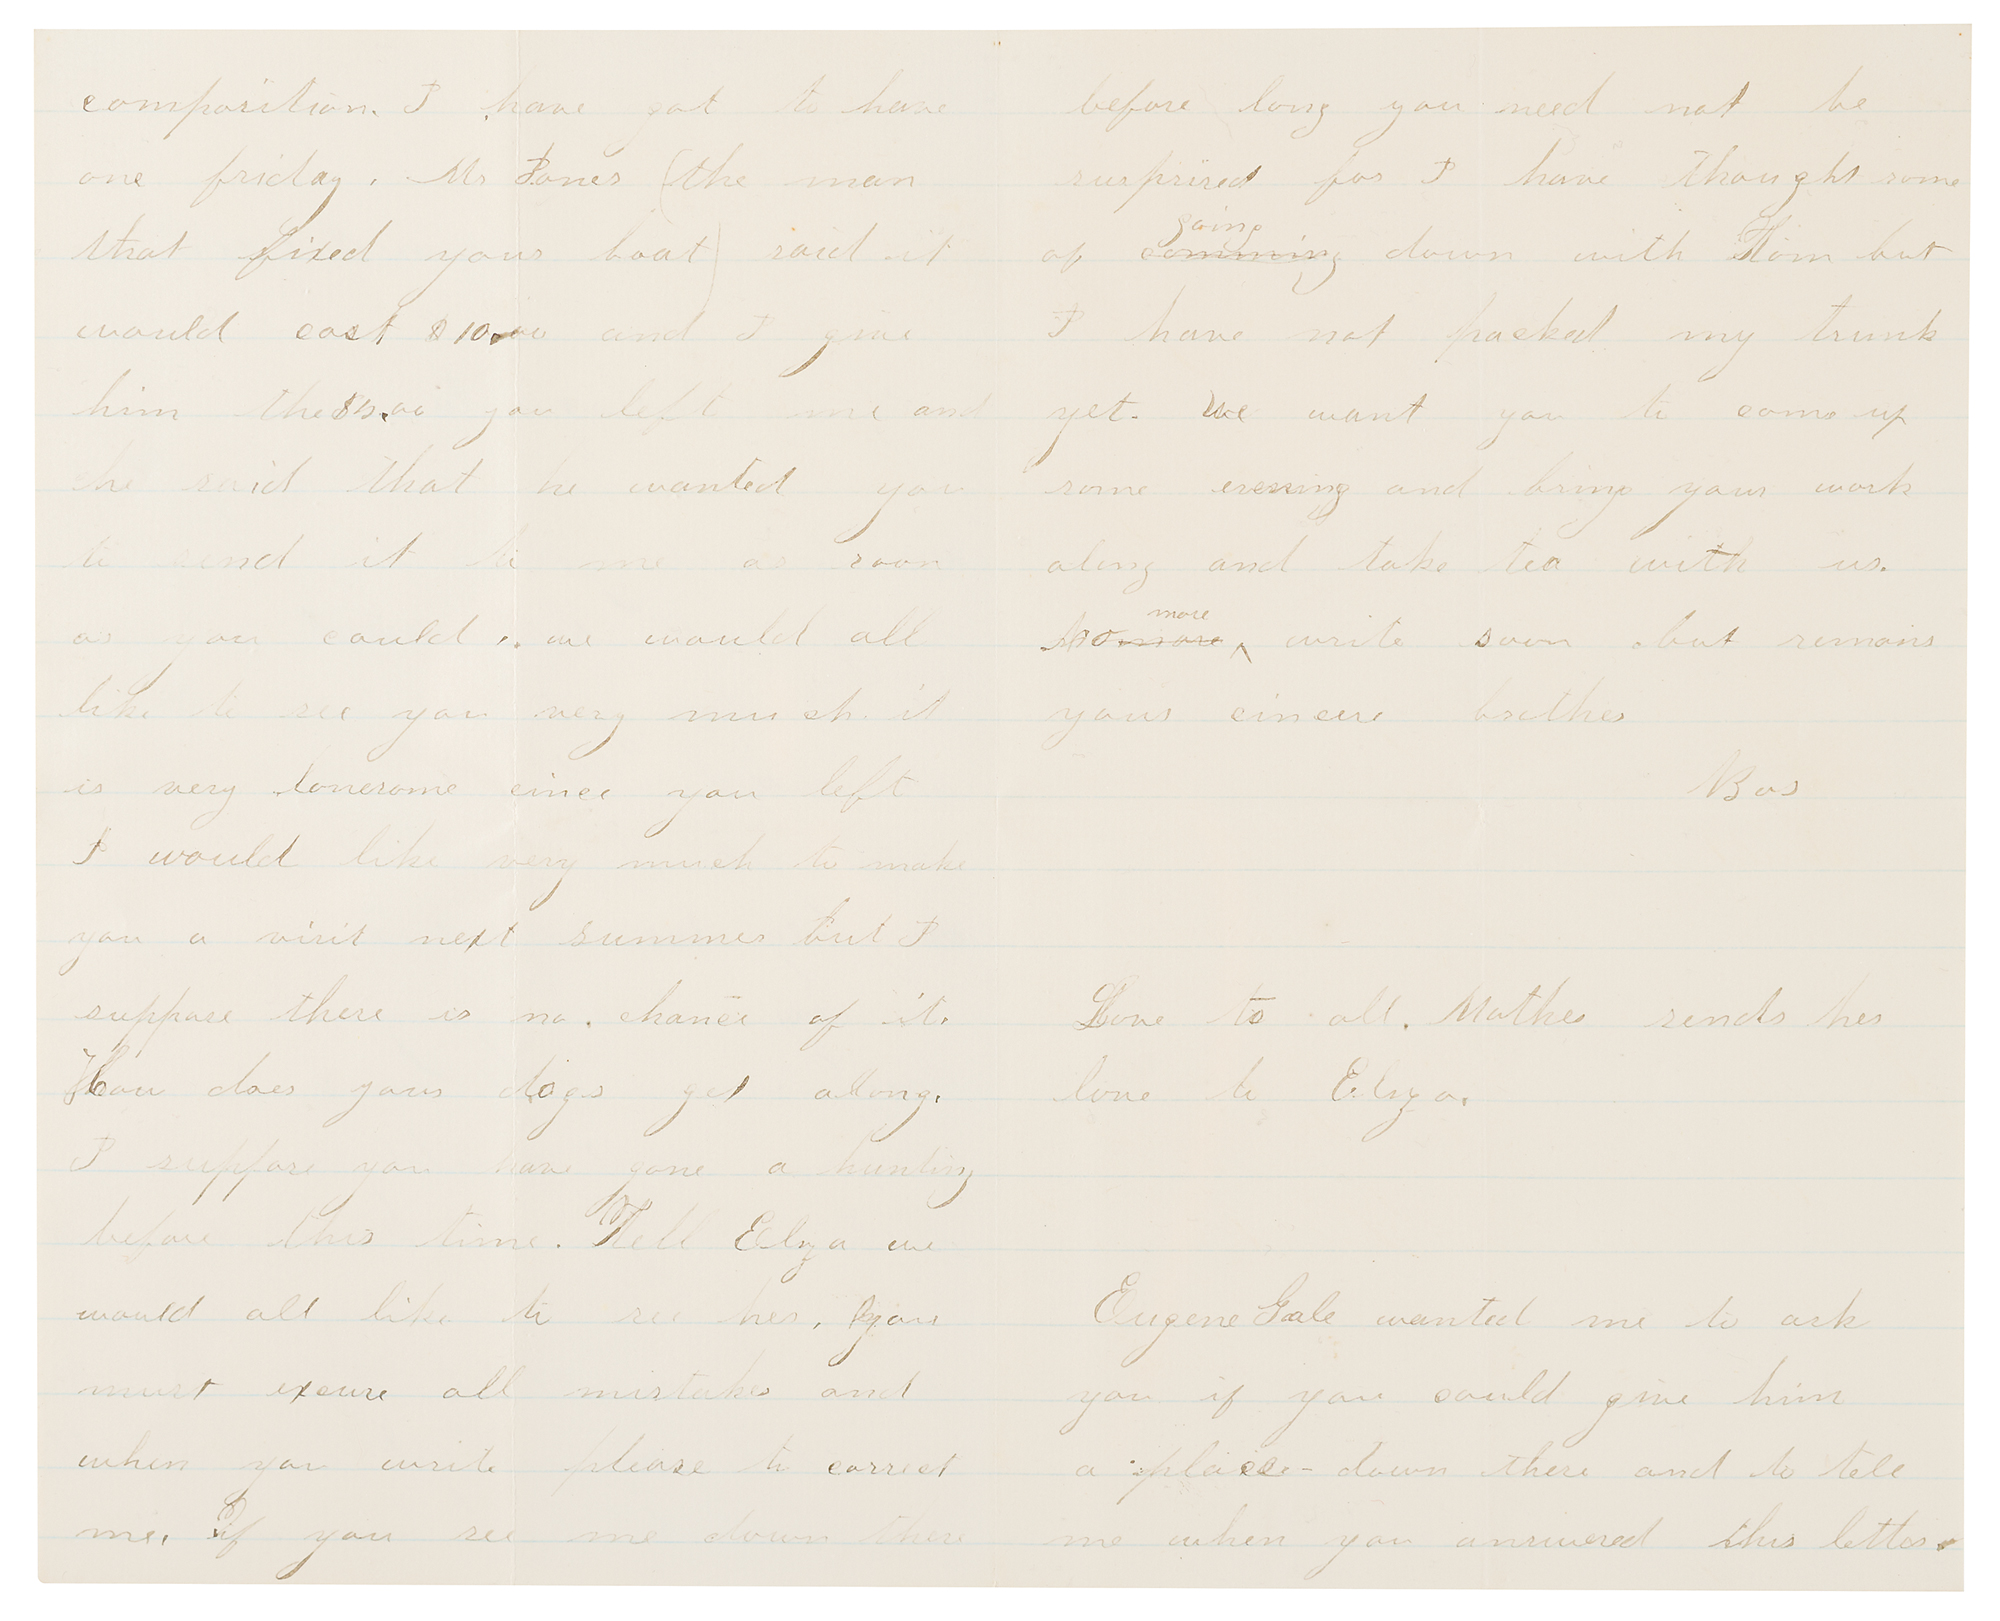 composition. I have got to have
one friday. Mr Jones (the man
that fixed your boat) said it
would cost $10.00 and I give
him the you left me and
he said that he wanted you
to send it to me as soon
as you could. we would all
like to see you very much it
is very lonesome cince you left
I would like very much to make
you a visit next summer but I
suppose there is no chance of it.
How does your dogs get allong.
I suppose you have gone a hunting
before this time. Tell Elyza we
would all like to see her. you
must excuse all mistakes and
when you write please to correct
me. if you see me down there
before long you need not be
surprised for I have thought some
of comming going down with Tom but
I have not packed my trunk
yet. We want you to come up
some evening and bring your work
along and take tea with us.
No more more write soon but remains
your cincere brother
Bos
Love to all. Mother sends her
love to Elyza.
Eugene Gale wanted me to ask
you if you could give him
a place down there and to tell
me when you answered this letter.